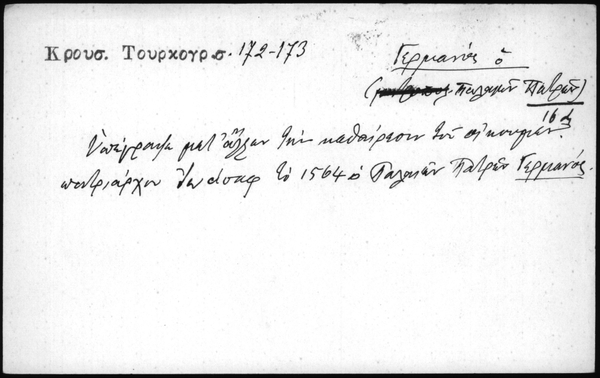 Κρουσ. Τουρκογρ. σ. 172-173
Γερμανός ὁ
(Παλαιῶν Πατρῶν)
16 α
Ὑπέγραψε μετ' ἄλλων τὴν καθαίρεσιν τοῦ οἰκουμεν.
πατριάρχου Ἰωάσαφ τὸ 1564 ὁ Παλαιῶν Πατρῶν Γερμανός.